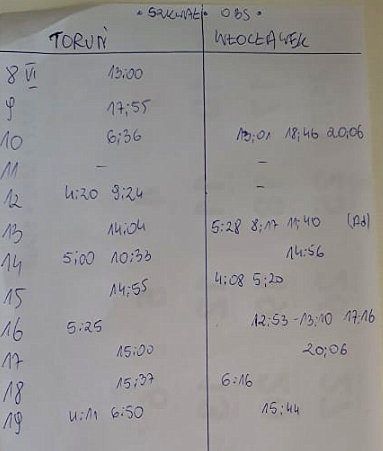 • SZKWAŁ • OBS •
TORUŃ WŁOCŁAWEK
8 VI 13:00
9 17:55
10 6:36 13:01 18:46 20:06
11 - -
12 4:20 9:24 -
13 14:04 5:28 8:17 11:40
14 5:00 10:33 14:56
15 14:55 4:08 5:20
16 5:25 12:53-13:10 17:16
17 15:00 20:06
18 15:37 6:16
19 4:11 6:50 15:44